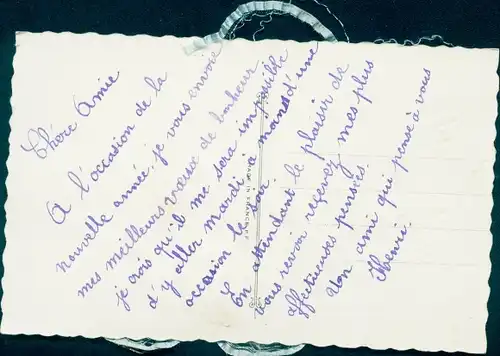 Chère Amie
A l'occasion de la
nouvelle année, je vous envoie
mes meilleurs vœux de bonheur
je crois qu'il me sera impossible
d'y aller mardi a moins d'une
occasion le soir.
En attendant le plaisir de
vous revoir reçevez mes plus
affectueuses pensées.
Un ami qui pense à vous
Henri.
MADE IN FRANCE